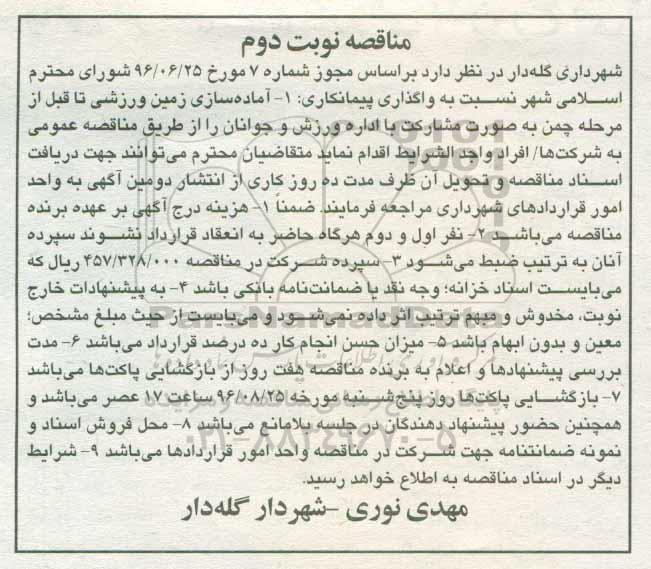 مناقصه نوبت دوم
شهرداری گله‌دار در نظر دارد براساس مجوز شماره ۷ مورخ ۹۶/۰۶/۲۵ شورای محترم
اسلامی شهر نسبت به واگذاری پیمانکاری: ۱- آماده‌سازی زمین ورزشی تا قبل از
مرحله چمن به صورت مشارکت با اداره ورزش و جوانان را از طریق مناقصه عمومی
به شرکت‌ها/ افراد واجد الشرایط اقدام نماید متقاضیان محترم می‌توانند جهت دریافت
اسناد مناقصه و تحویل آن ظرف مدت ده روز کاری از انتشار دومین آگهی به واحد
امور قراردادهای شهرداری مراجعه فرمایند. ضمناً ۱- هزینه درج آگهی بر عهده برنده
مناقصه می‌باشد ۲- نفر اول و دوم هرگاه حاضر به انعقاد قرارداد نشوند سپرده
آنان به ترتیب ضبط می‌شود ۳- سپرده شرکت در مناقصه ۴۵۷/۳۲۸/۰۰۰ ریال که
می‌بایست اسناد خزانه؛ وجه نقد یا ضمانت‌نامه بانکی باشد ۴- به پیشنهادات خارج
نوبت، مخدوش و مبهم ترتیب اثر داده نمی‌شود و می‌بایست از حیث مبلغ مشخص؛
معین و بدون ابهام باشد ۵- میزان حسن انجام کار ده درصد قرارداد می‌باشد ۶- مدت
بررسی پیشنهادها و اعلام به برنده مناقصه هفت روز از بازگشایی پاکت‌ها می‌باشد
۷- بازگشایی پاکت‌ها روز پنج‌شنبه مورخه ۹۶/۰۸/۲۵ ساعت ۱۷ عصر می‌باشد و
همچنین حضور پیشنهاد دهندگان در جلسه بلامانع می‌باشد ۸- محل فروش اسناد و
نمونه ضمانتنامه جهت شرکت در مناقصه واحد امور قراردادها می‌باشد ۹- شرایط
دیگر در اسناد مناقصه به اطلاع خواهد رسید.
مهدی نوری -شهردار گله‌دار
ParsNamadData
۰۲۱-۸۸۳۴۹۶۷۰-۵